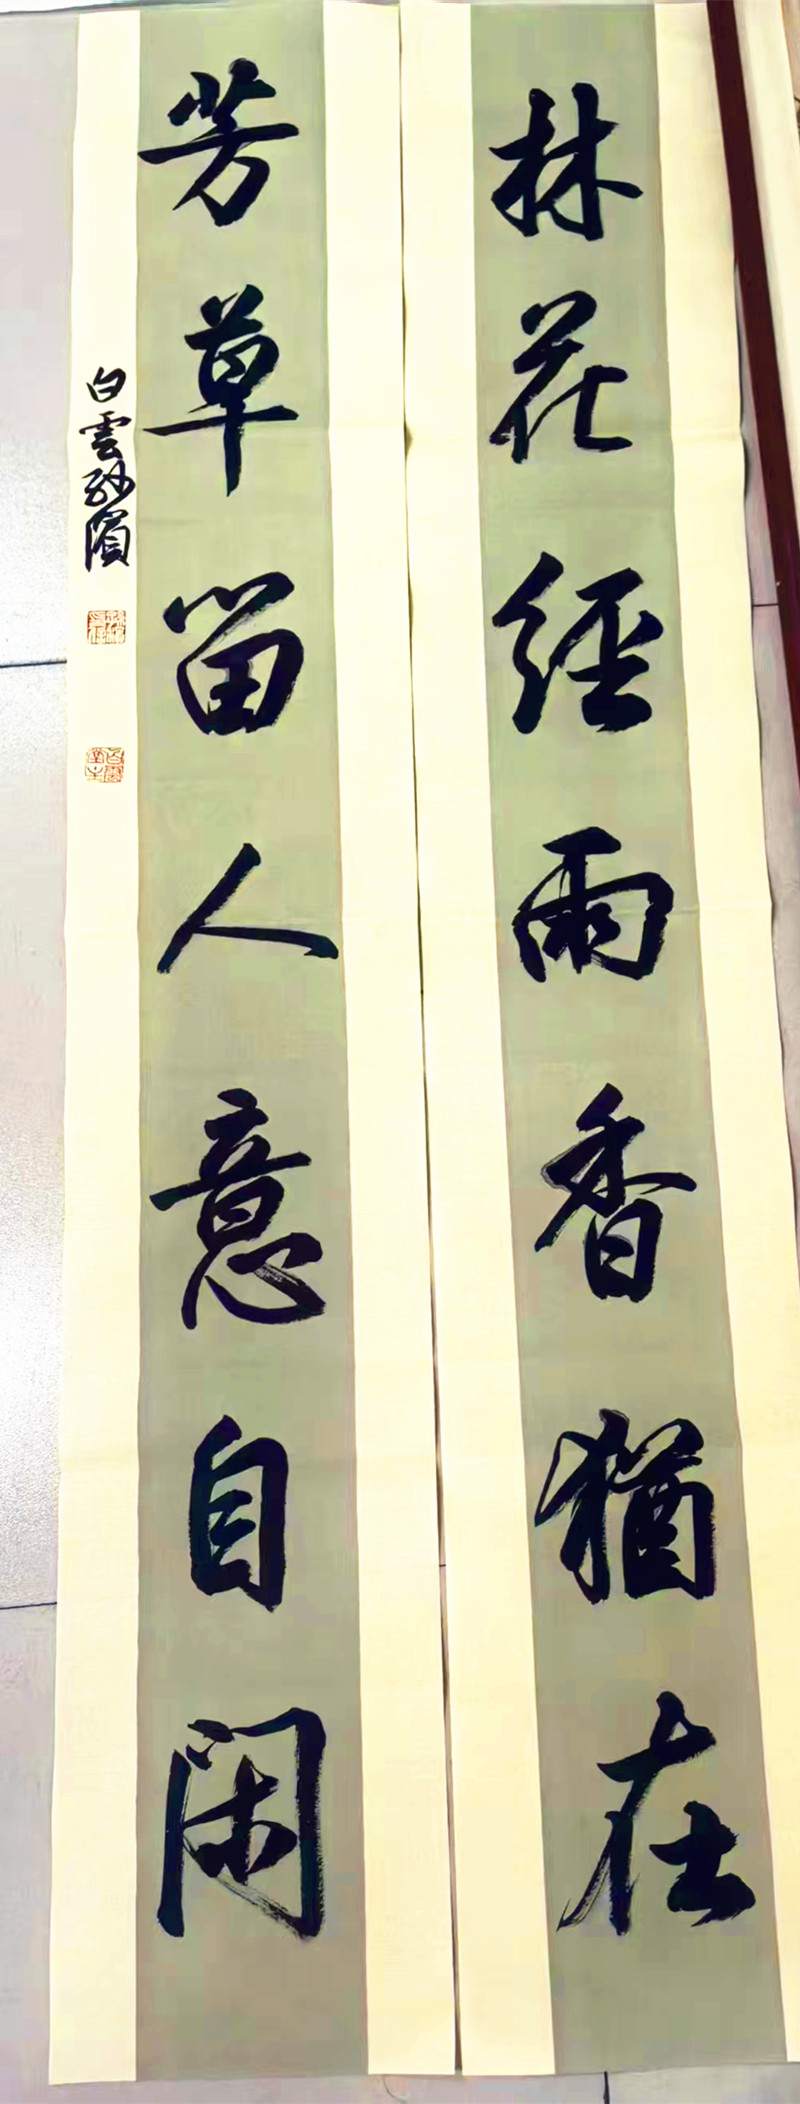 林花經雨香猶在
芳草留人意自閑
白雲